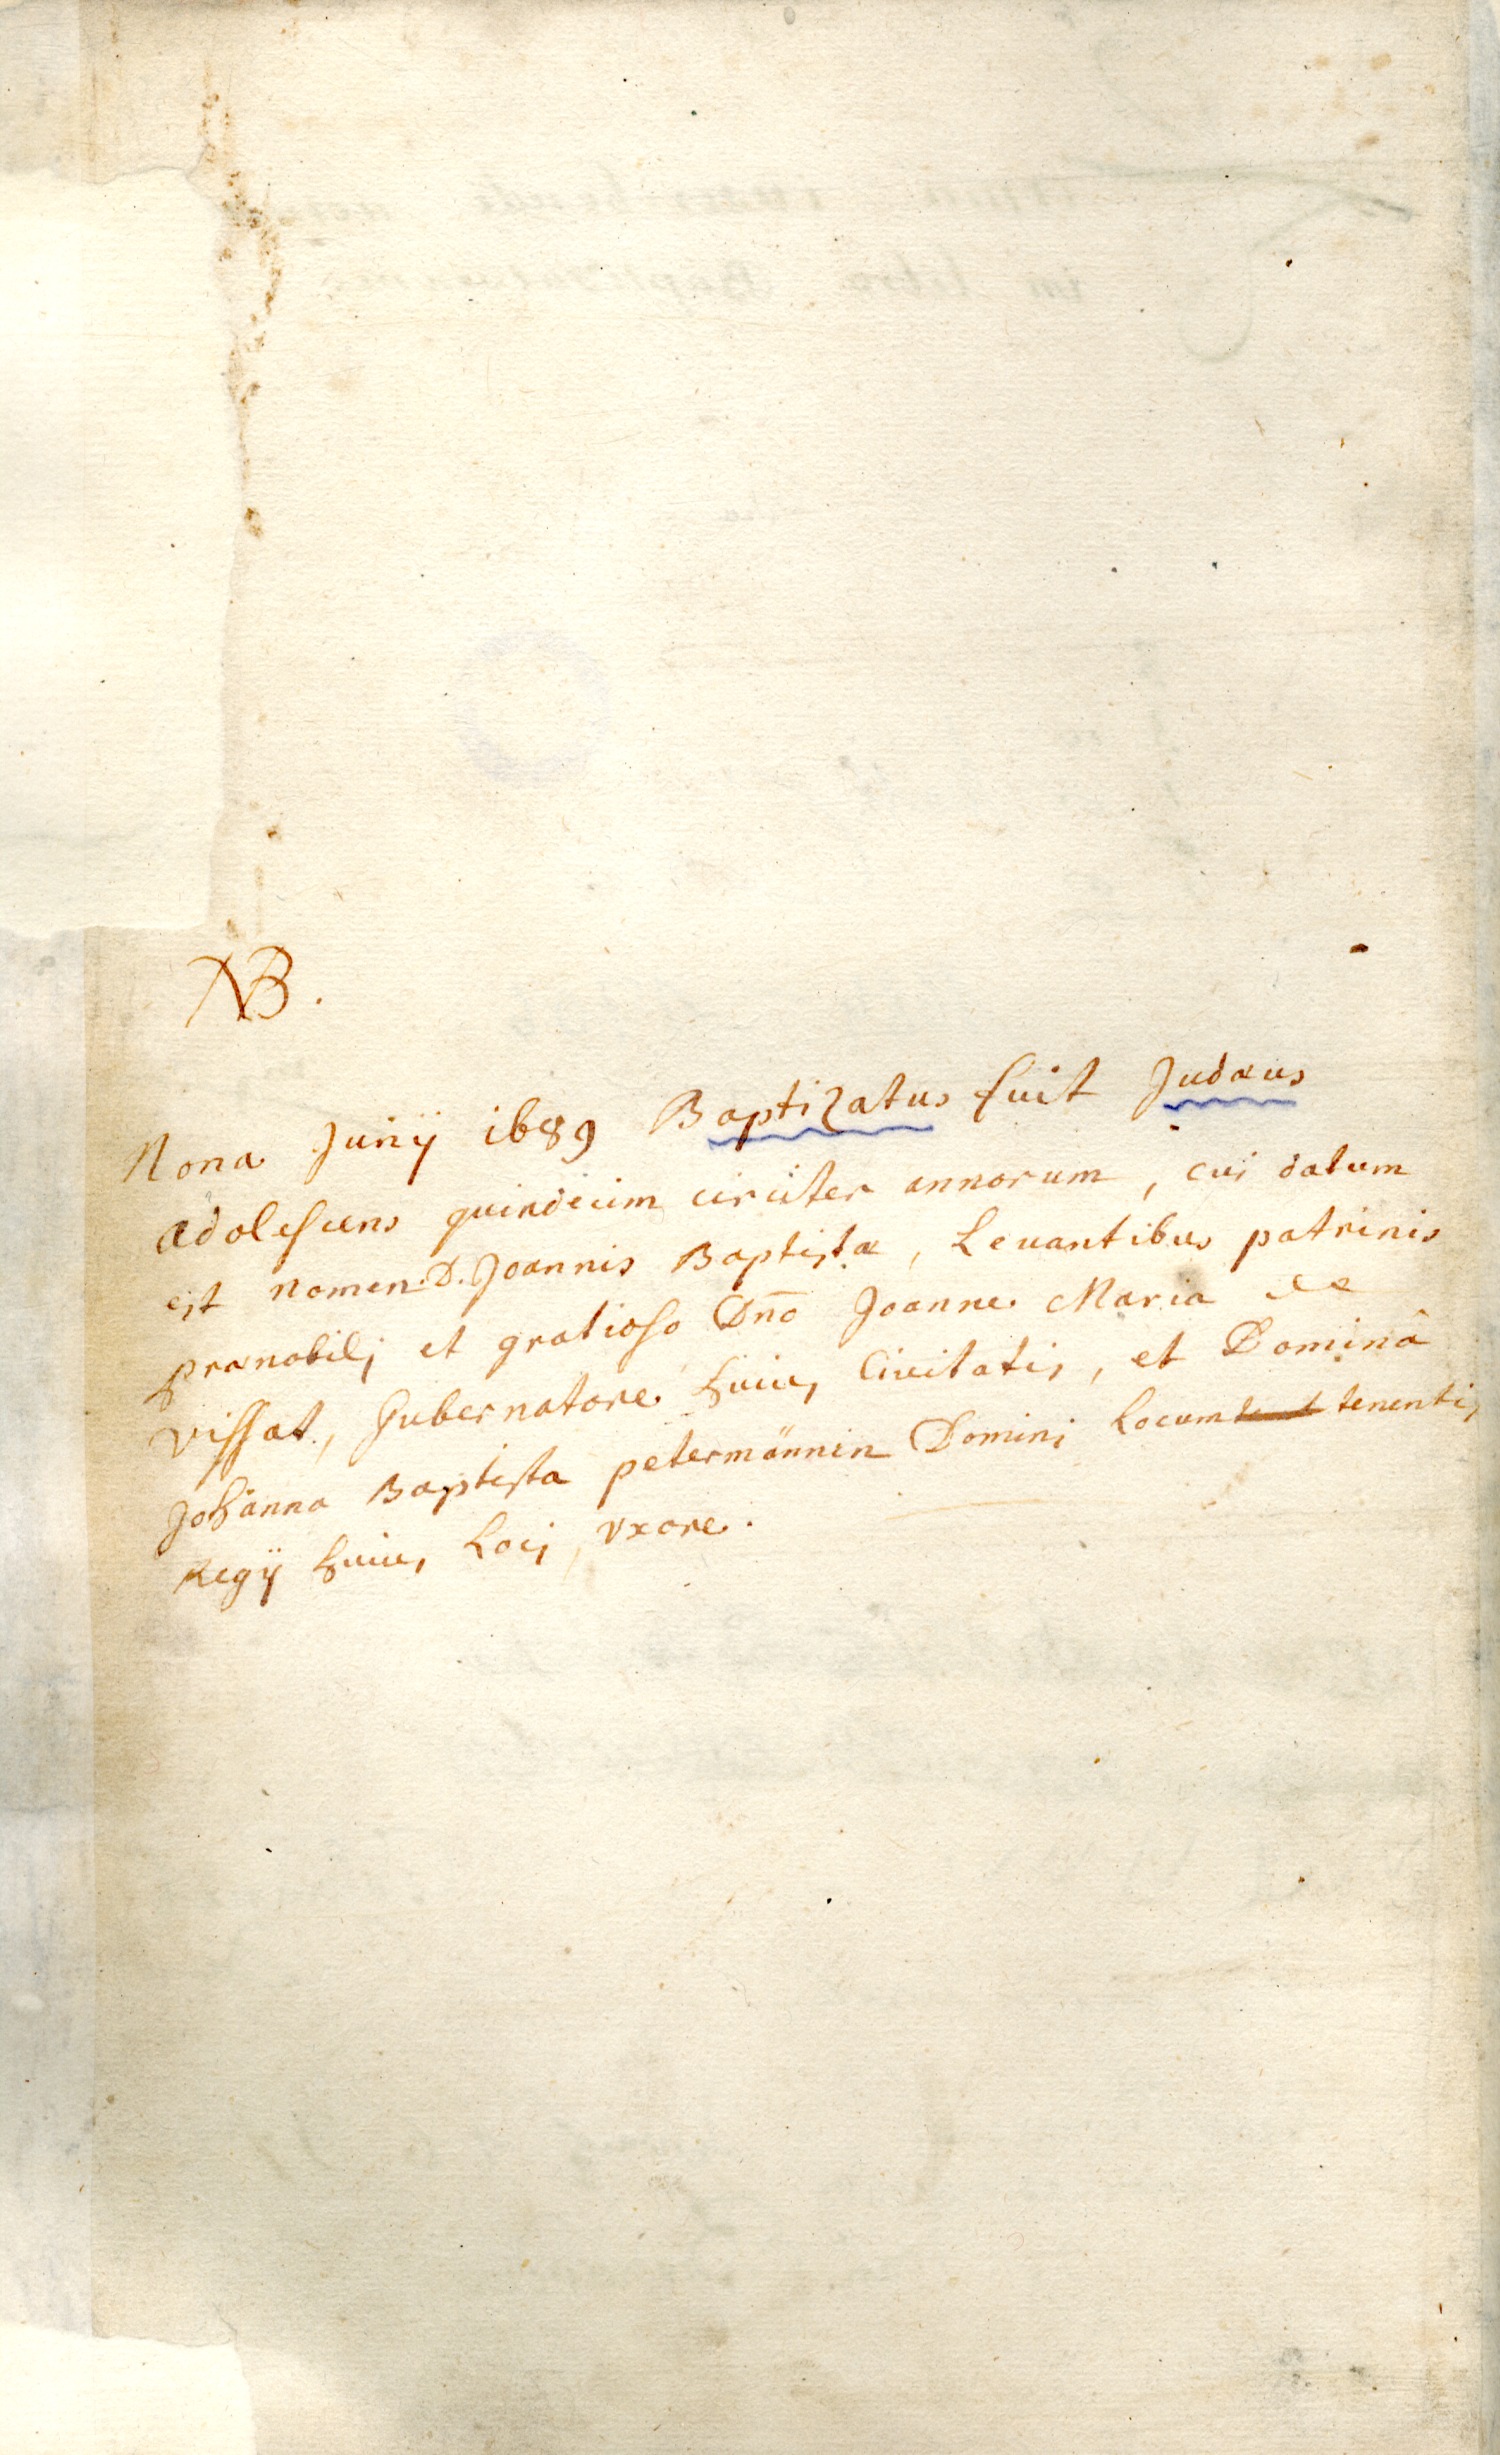 NB.
Nona Junij 1689 Baptizatus fuit Judæus
adolescens quindecim circiter annorum, cui datum
est nomen D. Joannis Baptistæ, Levantibus patrinis
prænobilj et gratioso Dn̄o Joanne Maria de
vissat, Gubernatore huius Civitatis, et Dominâ
Johanna Baptista petermännin Dominj Locum tenentis
Regij huius Locj, vxore.